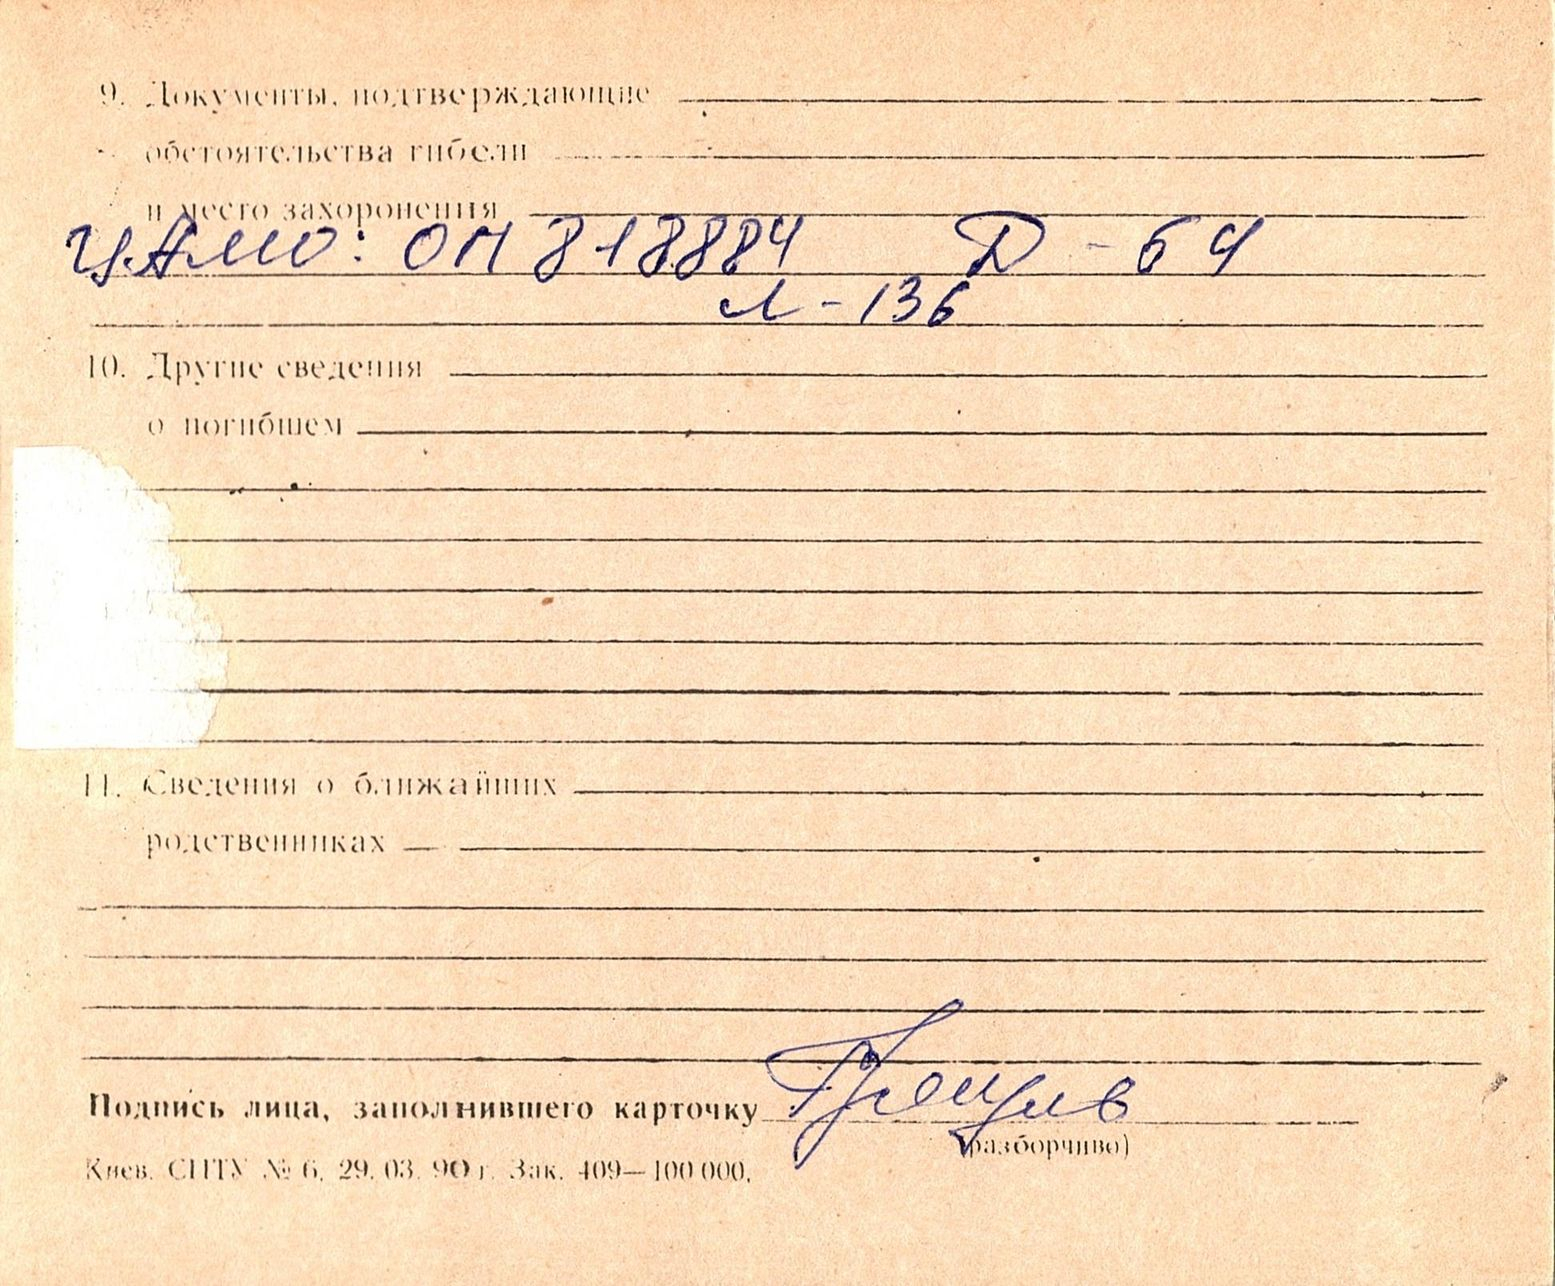 9. Документы, подтверждающие
обстоятельства гибели
и место захоронения
ЦАМО: ОП 818884 Д - 64
Л - 136
10. Другие сведения
о погибшем
11. Сведения о ближайших
родственниках
Подпись лица, заполнившего карточку
(разборчиво)
Киев. СПТУ № 6. 29. 03. 90 г. Зак. 409—100 000.